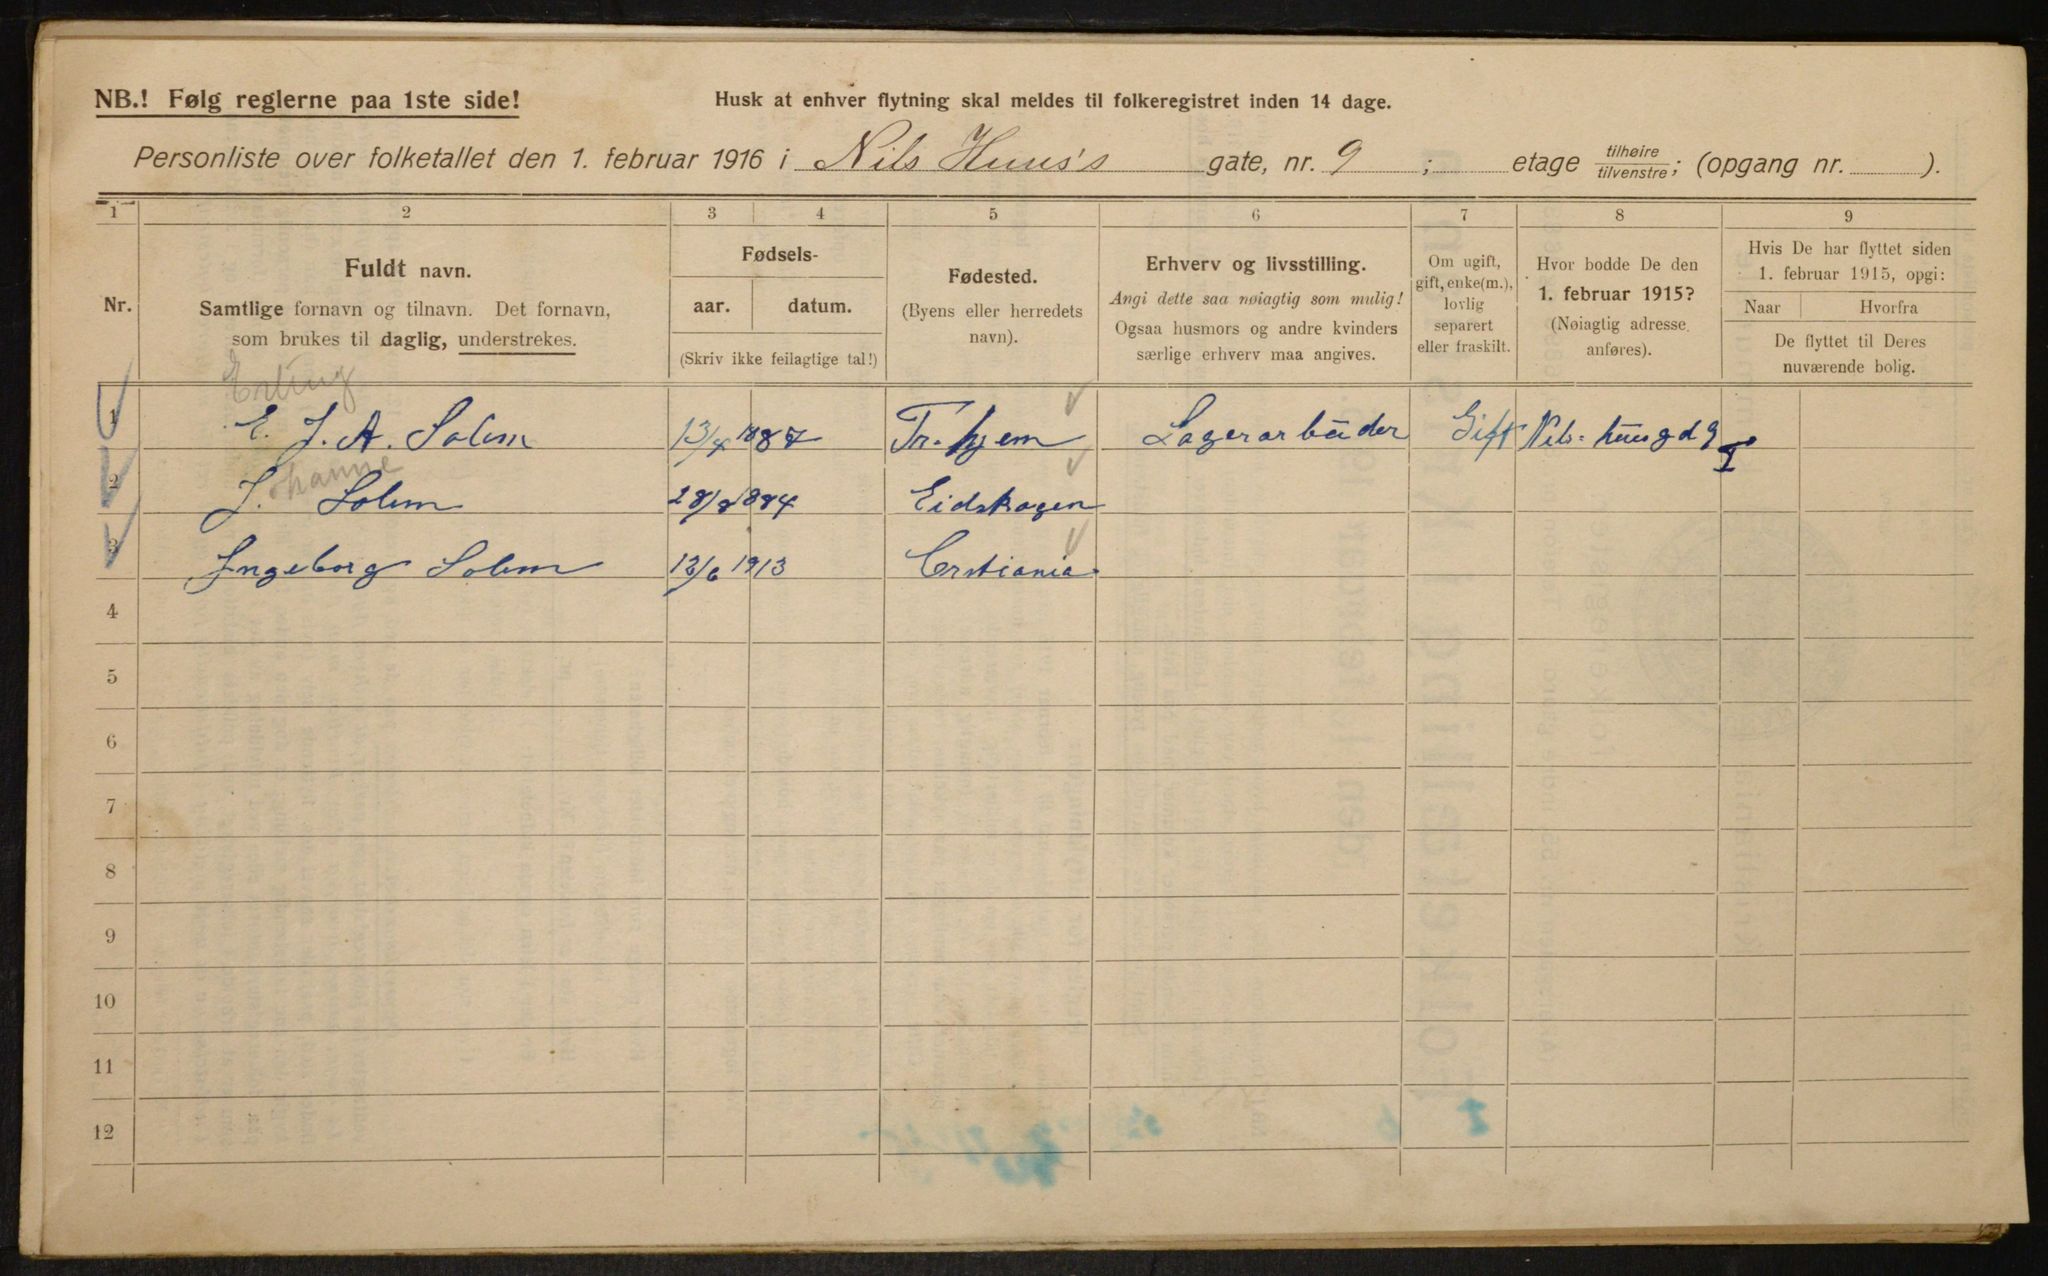 NB.! Følg reglerne paa 1ste side!
Husk at enhver flytning skal meldes til folkeregistret inden 14 dage.
Personliste over folketallet den 1. februar 1916 i Nils Huus's gate, nr. 9 ; etage tilhøire/tilvenstre; (opgang nr. ).
1 2 3 4 5 6 7 8 9
Nr.
Fuldt navn.
Samtlige fornavn og tilnavn. Det fornavn,
som brukes til daglig, understrekes.
Fødsels-
aar. datum.
(Skriv ikke feilagtige tal!)
Fødested.
(Byens eller herredets
navn).
Erhverv og livsstilling.
Angi dette saa nøiagtig som mulig!
Ogsaa husmors og andre kvinders
særlige erhverv maa angives.
Om ugift,
gift, enke(m.),
lovlig
separert
eller fraskilt.
Hvor bodde De den
1. februar 1915?
(Nøiagtig adresse
anføres).
Hvis De har flyttet siden
1. februar 1915, opgi:
Naar Hvorfra
De flyttet til Deres
nuværende bolig.
Erling
1 E. J. A. Solem 13/4 1887 Tr.hjem Lagerarbeider Gift Nils-huusgd 9
Johanne
2 J. Solem 28/8 1884 Eidskogen
3 Ingeborg Solem 12/6 1913 Crstiania
4
5
6
7
8
9
10
11
12